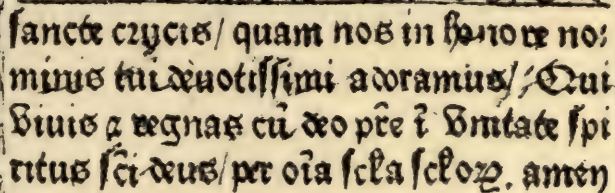 sancte crucis/ quam nos in honore no:
minis tui deuotissimi adoramus/ Qui
Viuis ⁊ regnas cū deo pr̄e ī Vnitate spi
ritus sc̄i deus/ per oīa scl̄a scl̄oꝝ. amen